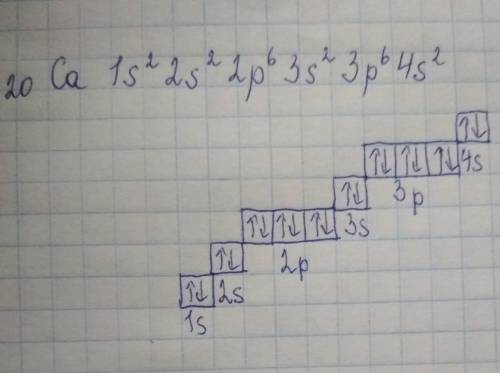 20 Ca 1s² 2s² 2p⁶ 3s² 3p⁶ 4s²
↑↓
↑↓ ↑↓ ↑↓ 4s
↑↓ 3p
↑↓ ↑↓ ↑↓ 3s
↑↓ 2p
↑↓ 2s
1s